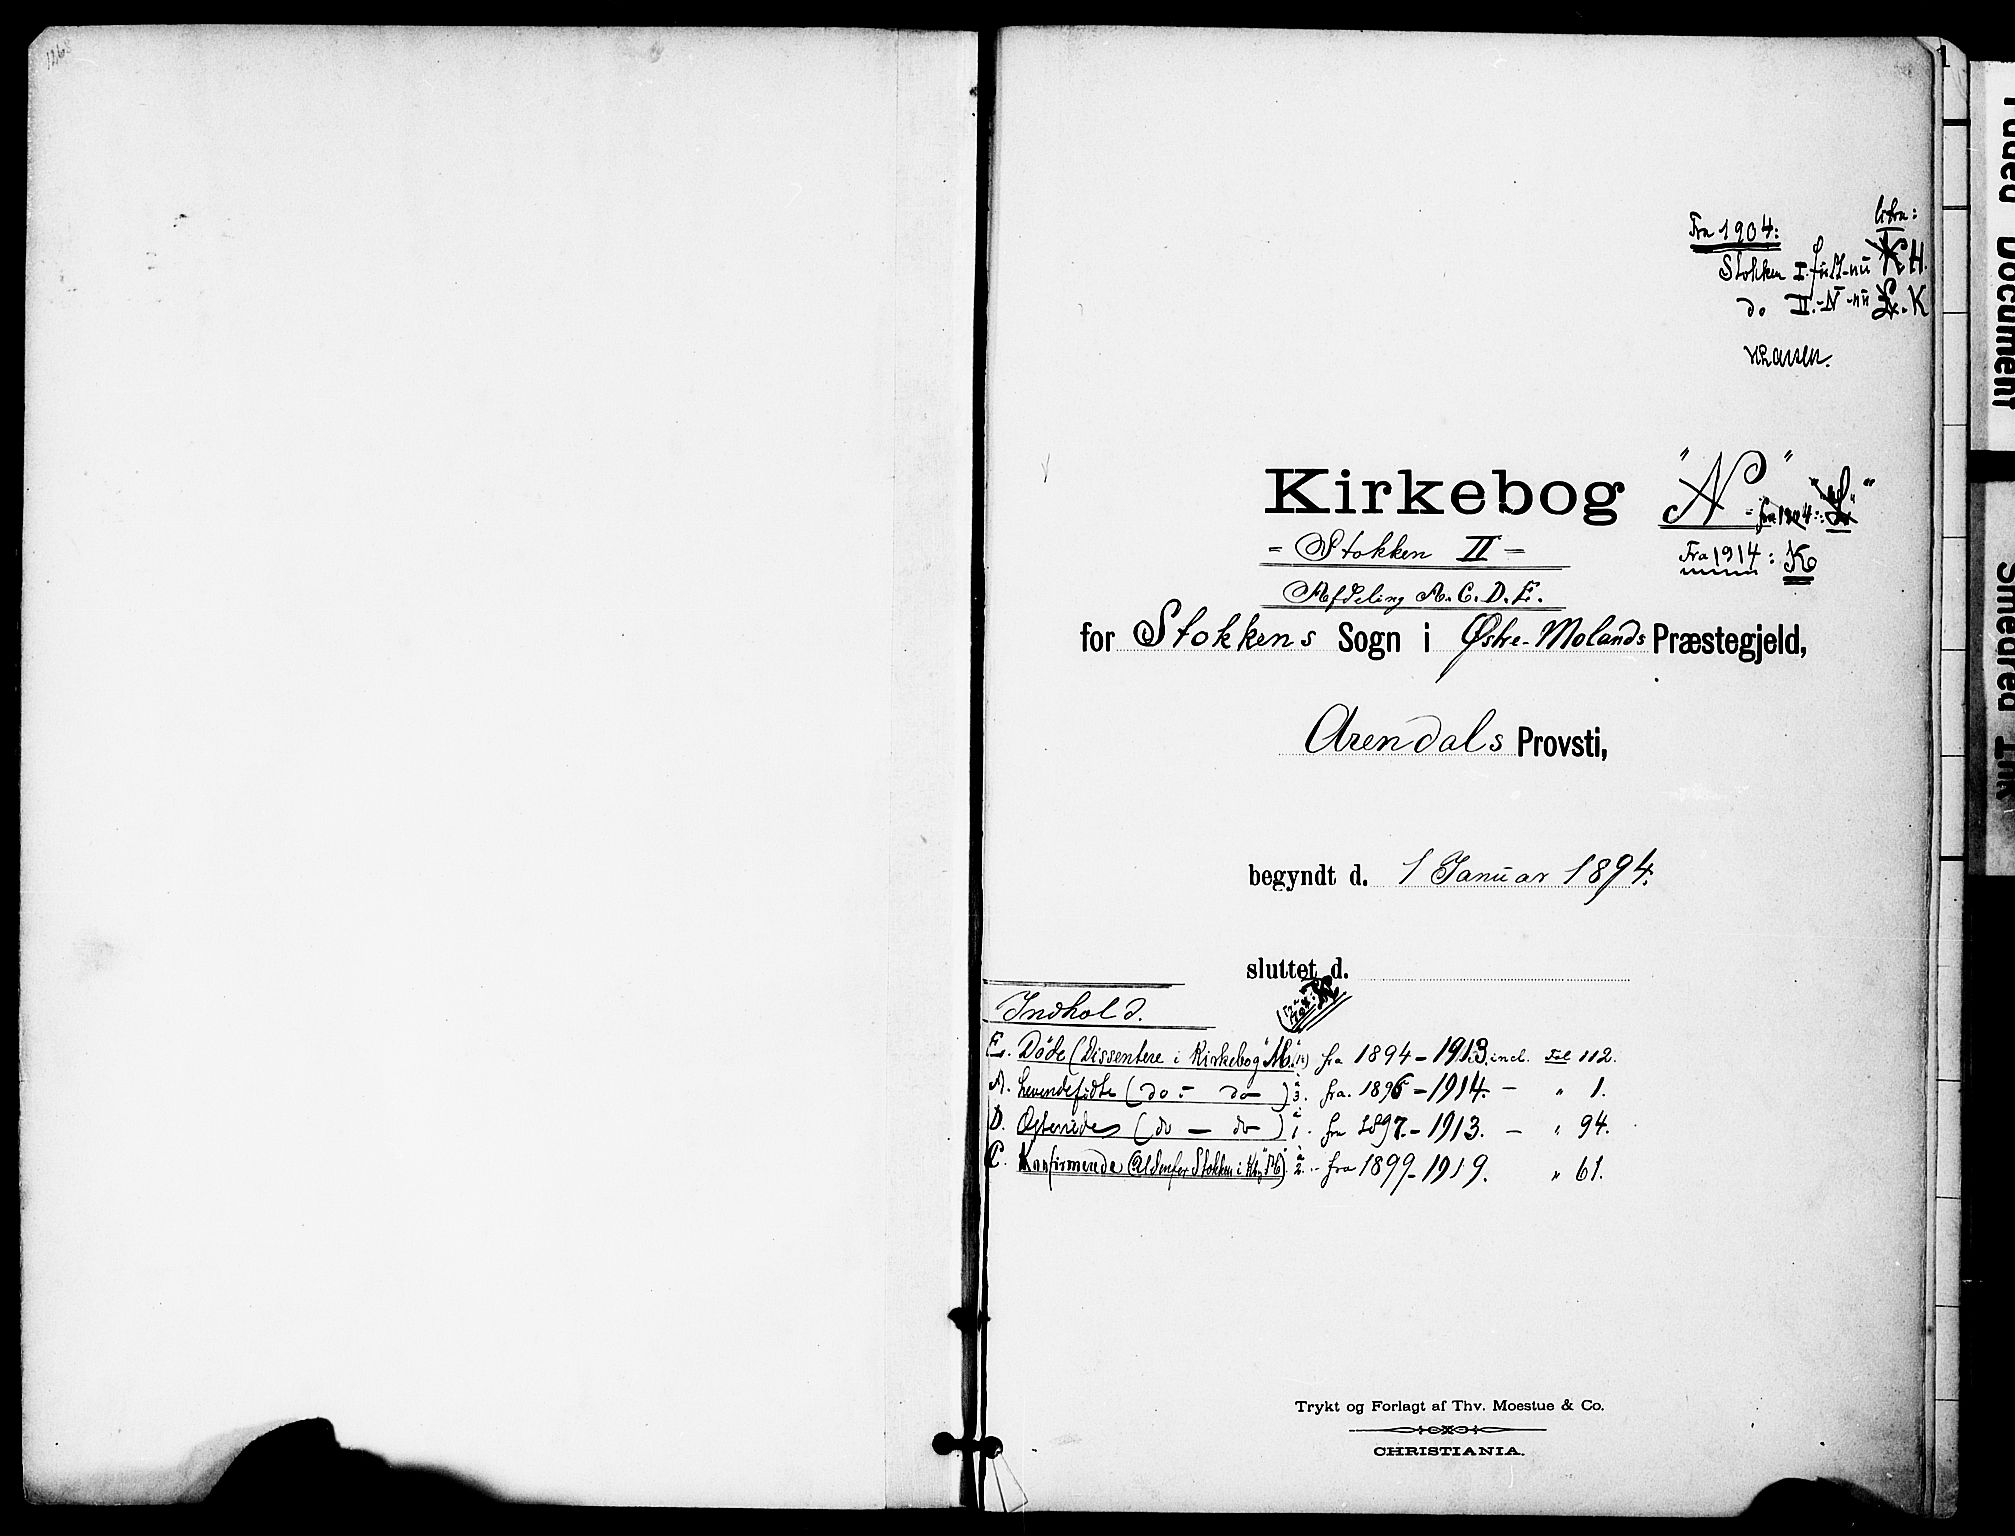 Fra 1904:
litra:
Stokken I. - nu K H.
do II. - N - nu L. K
Kirkebog "N" - fra 1904: "L"
= Stokken II =
Fra 1914: K
Afdeling A. C. D. E.
for Stokkens Sogn i Østre-Molands Præstegjeld,
Arendals Provsti,
begyndt d. 1 Januar 1894.
sluttet d.
Indhold.
E. Døde (Dissentere i Kirkebog "M") fra 1894 - 1913. incl. Fol 112.
A. Levendefødte (do - do) 3. fra. 1896 - 1914. - " 1.
D. (do - do) 1. fra 1897. - 1913. - " 94.
C. Konfirmerede 2. - fra 1899 - 1919. " 61.
Trykt og Forlagt af Thv. Moestue & Co.
CHRISTIANIA.
Faded Document
Smeared Ink